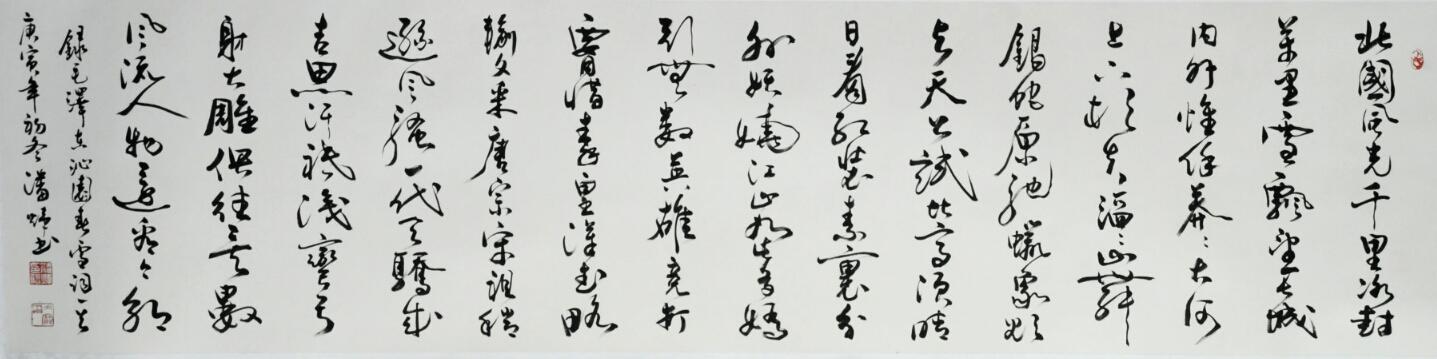 北國風光千里冰封
萬里雪飄望長城
内外惟余莽莽大河
上下頓失滔滔山舞
銀蛇原馳蠟象欲
與天公試比高須晴
日看紅裝素裹分
外妖嬈江山如此多嬌
引無數英雄竞折
腰惜秦皇漢武略
輸文采唐宗宋祖稍
遜風騷一代天驕成
吉思汗祇識彎弓
射大雕俱往矣數
風流人物還看今朝
録毛澤东沁園春雪詞一首
庚寅年初冬潘书